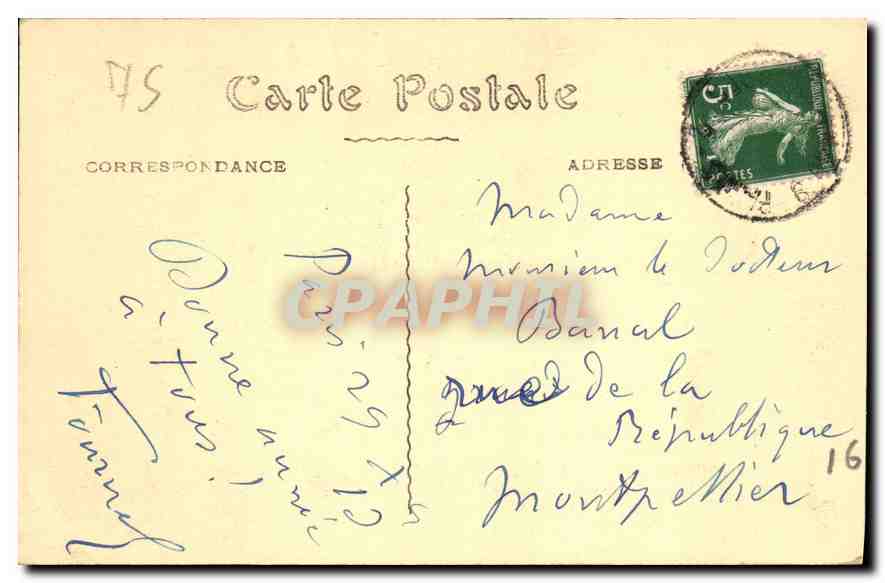 75
Carte Postale
CORRESPONDANCE
ADRESSE
5c
POSTES
Paris 29 X
Bonne année
à tous!
Madame
Monsieur le Docteur
Banal
de la
République
Montpellier
16
CPAPHIL